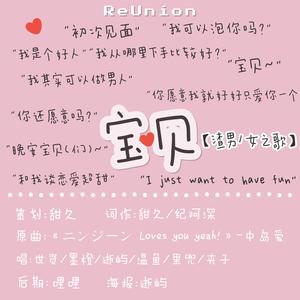 ReUnion
"初次见面" "我可以泡你吗?"
"我是个好人" "我从哪里下手比较好?"
"宝贝~"
"我其实可以做男人"
"你愿意我就好好只爱你一个"
"你还愿意吗?"
宝贝
【渣男/女之歌】
"晚安宝贝(们)~"
"和我谈恋爱超甜" "I just want to have fun"
策划:甜久 词作:甜久/纪河深
原曲:《ニンジーン Loves you yeah!》-中岛爱
唱:世贤/墨橙/逝屿/温鱼/里兜/夹子
后期:哩哩 海报:逝屿